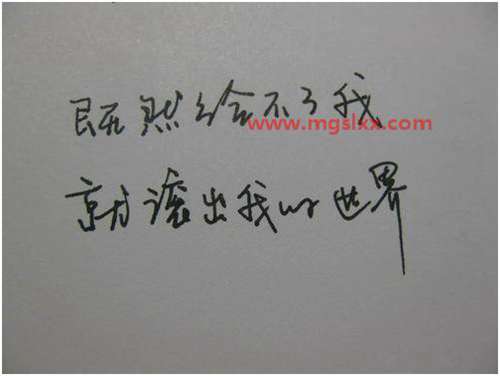 既然给不了我
www.mgslxx.com
就滚出我的世界